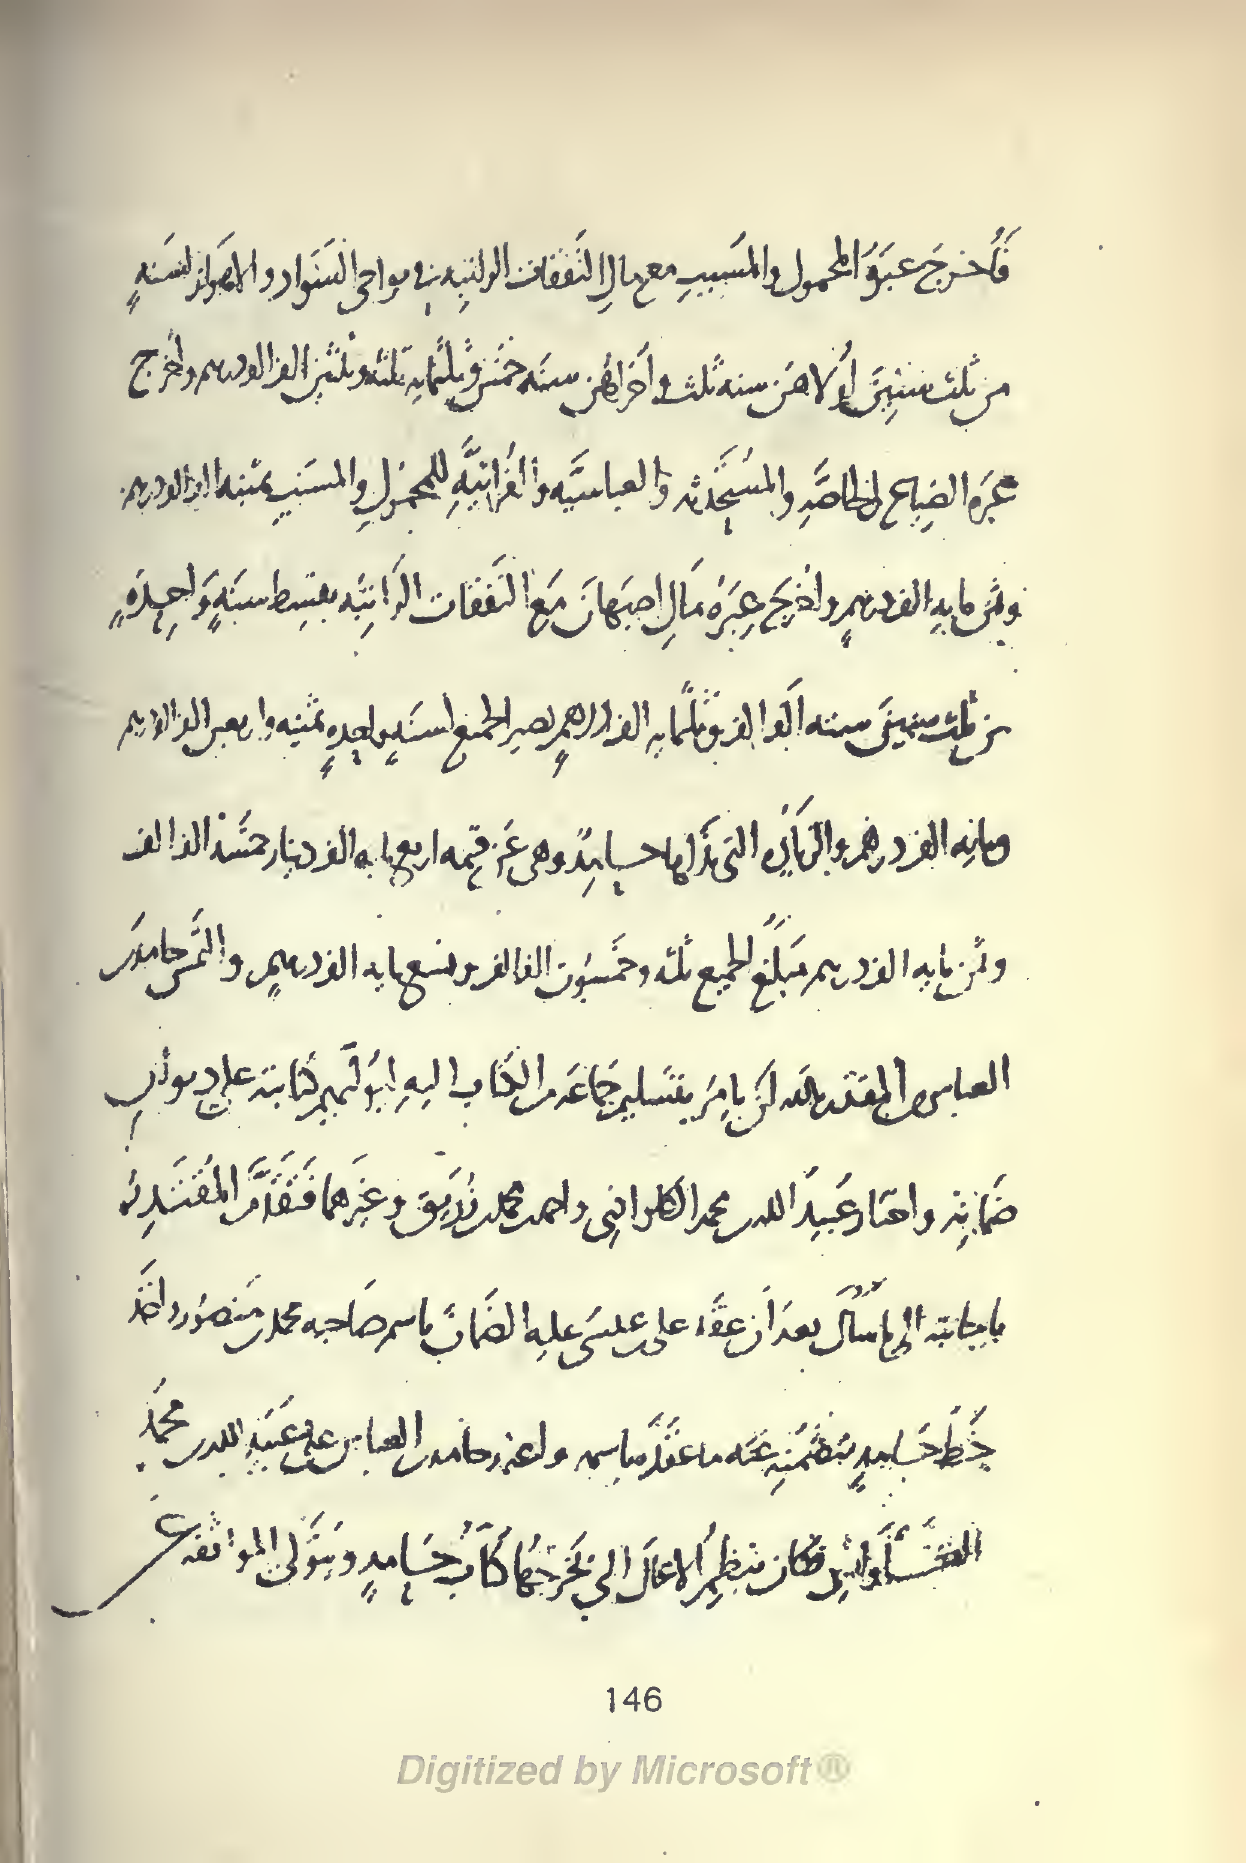 فأخرج عبرة المحمول والمسبب مع مال النفقات الراتبه في نواحي السواد والاهواز لسنةٍ
من ثلث سنين أولاهن سنه ثلث وأخراهن سنه خمس وثلثمايه ثلثه وثلثين الف الف درهم وأخرج
عبره الضياع الخاصه والمستحدثه والعباسيه والفراتيه للمحمول والمسبب بثمنيه الف الف درهم
وثمن مايه الف درهم وأخرج عبره مال اصبهان مع النفقات الراتبه بقسط سنةٍ واحدةٍ
من ثلث سنين سته الف الف وثلثمايه الف درهم يصير الجميع لسنه واحده ثمنيه واربعين الف الف درهم
ومايه الف درهم والزياده التي بذلها حامد وهي عن قيمه اربع مايه الف دينار خمسه الف الف
وثمن مايه الف درهم مبلغ الجميع ثلثه وخمسون الف الف وتسع مايه الف درهم والتمس حامد بن
العباس من المقتدر بالله أن يأمر بتسليم جماعه من الكتاب اليه ليوليهم كتابته على ديوان
ضمانه واختار عبيد الله بن محمد الكلوذاني واحمد بن محمد بن زريق وغيرهما فتقدم المقتدر
باجابته الى ما سأل بعد أن عقد على بن عيسى عليه الضمان باسم صاحبه محمد بن منصور واخذ
خط حامد بتضمنه عنه ما عقد باسمه واعتمد حامد بن العباس على عبيد الله بن محمد
فكان ينظم الاعمال التي يخرجها كتاب حامد ويتولى الموافقه عن
146
Digitized by Microsoft®